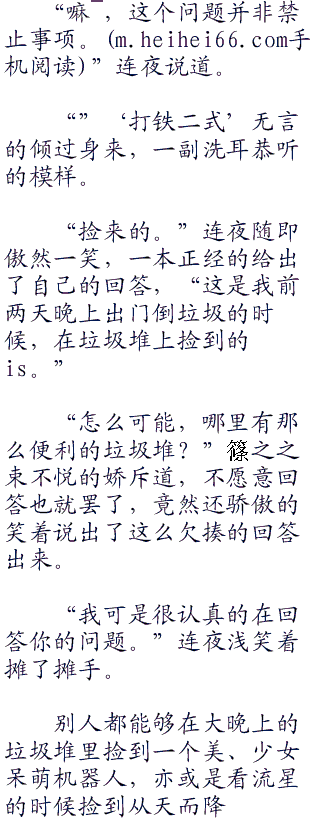 “嘛”，这个问题并非禁
止事项。(m.heihei66.com手
机阅读)”连夜说道。
“”‘打铁二式’无言
的倾过身来，一副洗耳恭听
的模样。
“捡来的。”连夜随即
傲然一笑，一本正经的给出
了自己的回答，“这是我前
两天晚上出门倒垃圾的时
候，在垃圾堆上捡到的
is。”
“怎么可能，哪里有那
么便利的垃圾堆？”篠之之
束不悦的娇斥道，不愿意回
答也就罢了，竟然还骄傲的
笑着说出了这么欠揍的回答
出来。
“我可是很认真的在回
答你的问题。”连夜浅笑着
摊了摊手。
别人都能够在大晚上的
垃圾堆里捡到一个美、少女
呆萌机器人，亦或是看流星
的时候捡到从天而降